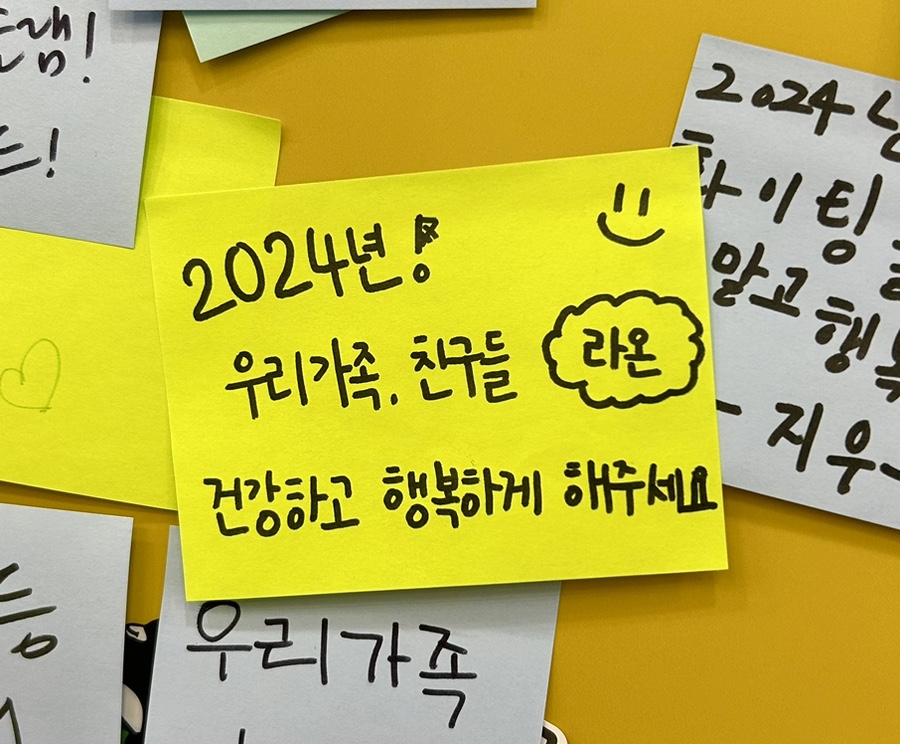 2024년!
우리가족, 친구들
라온
건강하고 행복하게 해주세요
2024
화이팅
말고
지우
우리가족